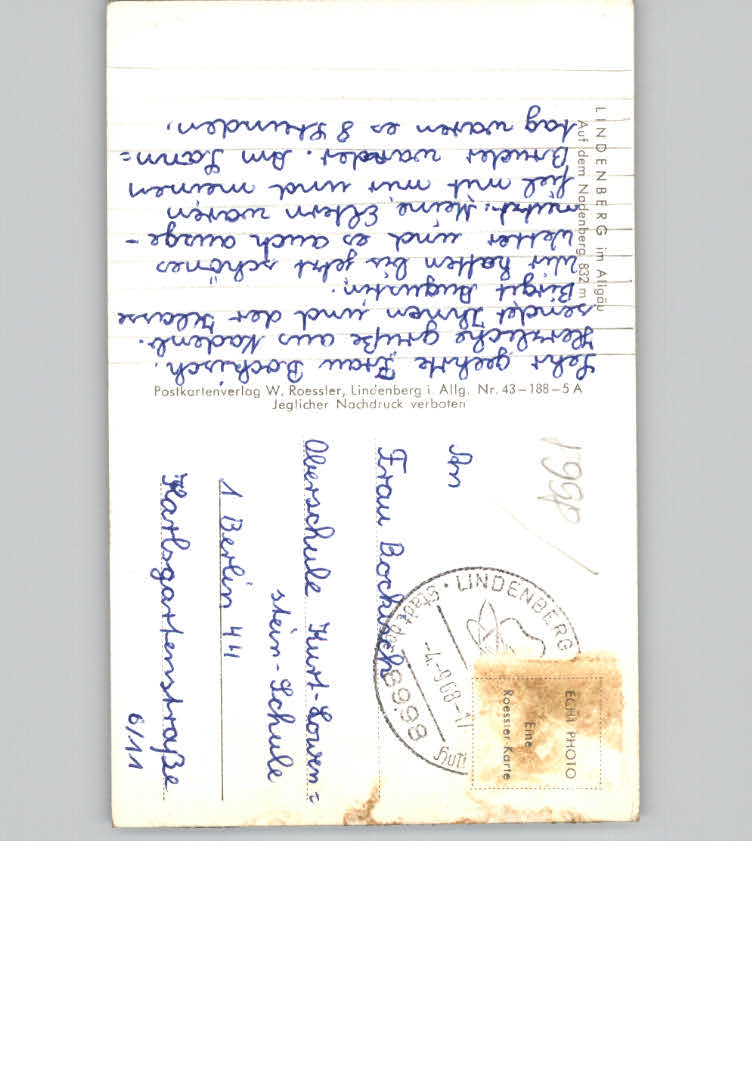 LINDENBERG im Allgäu
Auf dem Nadenberg 832 m
Sehr geehrte Frau Bockisch.
Herzliche grüße aus Nadenb.
sendet Ihnen und der Klasse
Birgit Augustin.
Wir hatten bis jetzt schönes
Wetter und es auch ausge-
nützt. Meine Eltern waren
fiel mit mir und meinen
Bruder wander. Am Sonn=
tag waren es 8 Stunden.
Postkartenverlag W. Roessler, Lindenberg i. Allg. Nr. 43–188–5 A
Jeglicher Nachdruck verboten
1998
An
Frau Bockisch
Oberschule Kurt-Löwen=
stein-Schule
1 Berlin 44
Karlsgartenstraße
6/11
LINDENBERG
Stadt der
-4.-9.68-17
8998
ECHT PHOTO
Eine
Roessler-Karte